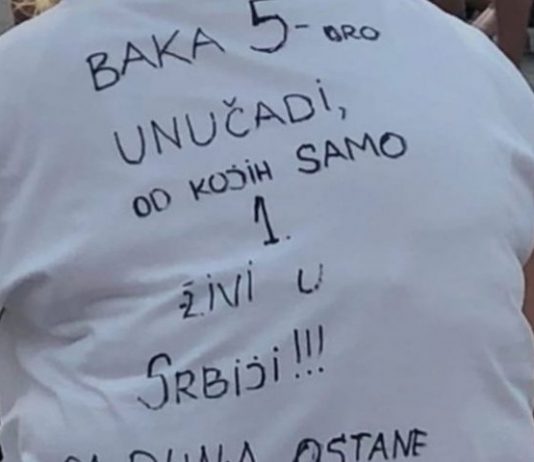 BAKA 5-ORO
UNUČADI,
OD KOJIH SAMO
1.
ŽIVI U
SRBIJI!!!
OSTANE